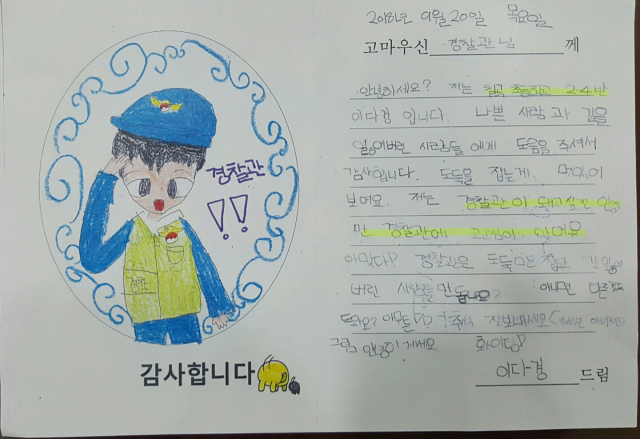 경찰관
!!
경찰
감사합니다
2018년 9월 20일 목요일
고마우신 경찰관님 께
안녕하세요? 저는 칠곡 초등학교 2-4반
이다경 입니다. 나쁜 사람과 길을
잃어버린 사람들에게 도움을 주셔서
감사합니다. 도둑을 잡는게 멋있어
보여요. 저는 경찰관이 되고 싶진 않지
만 경찰관에 관심이 있어요
경찰관은 도둑
버린 사람들만 돕나요? 아니면 다른
도와요? 추석 잘 보내세요
그럼 안녕히 계세요 화이팅!
이다경 드림